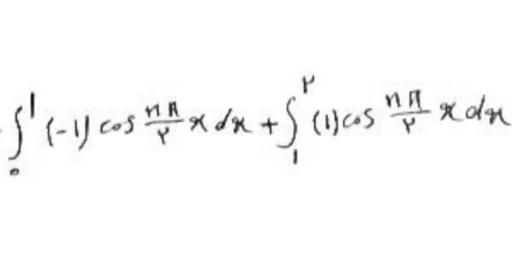 ∫₀¹ (-1) cos nπ/۲ x dx + ∫₁^۲ (1) cos nπ/۲ x dx